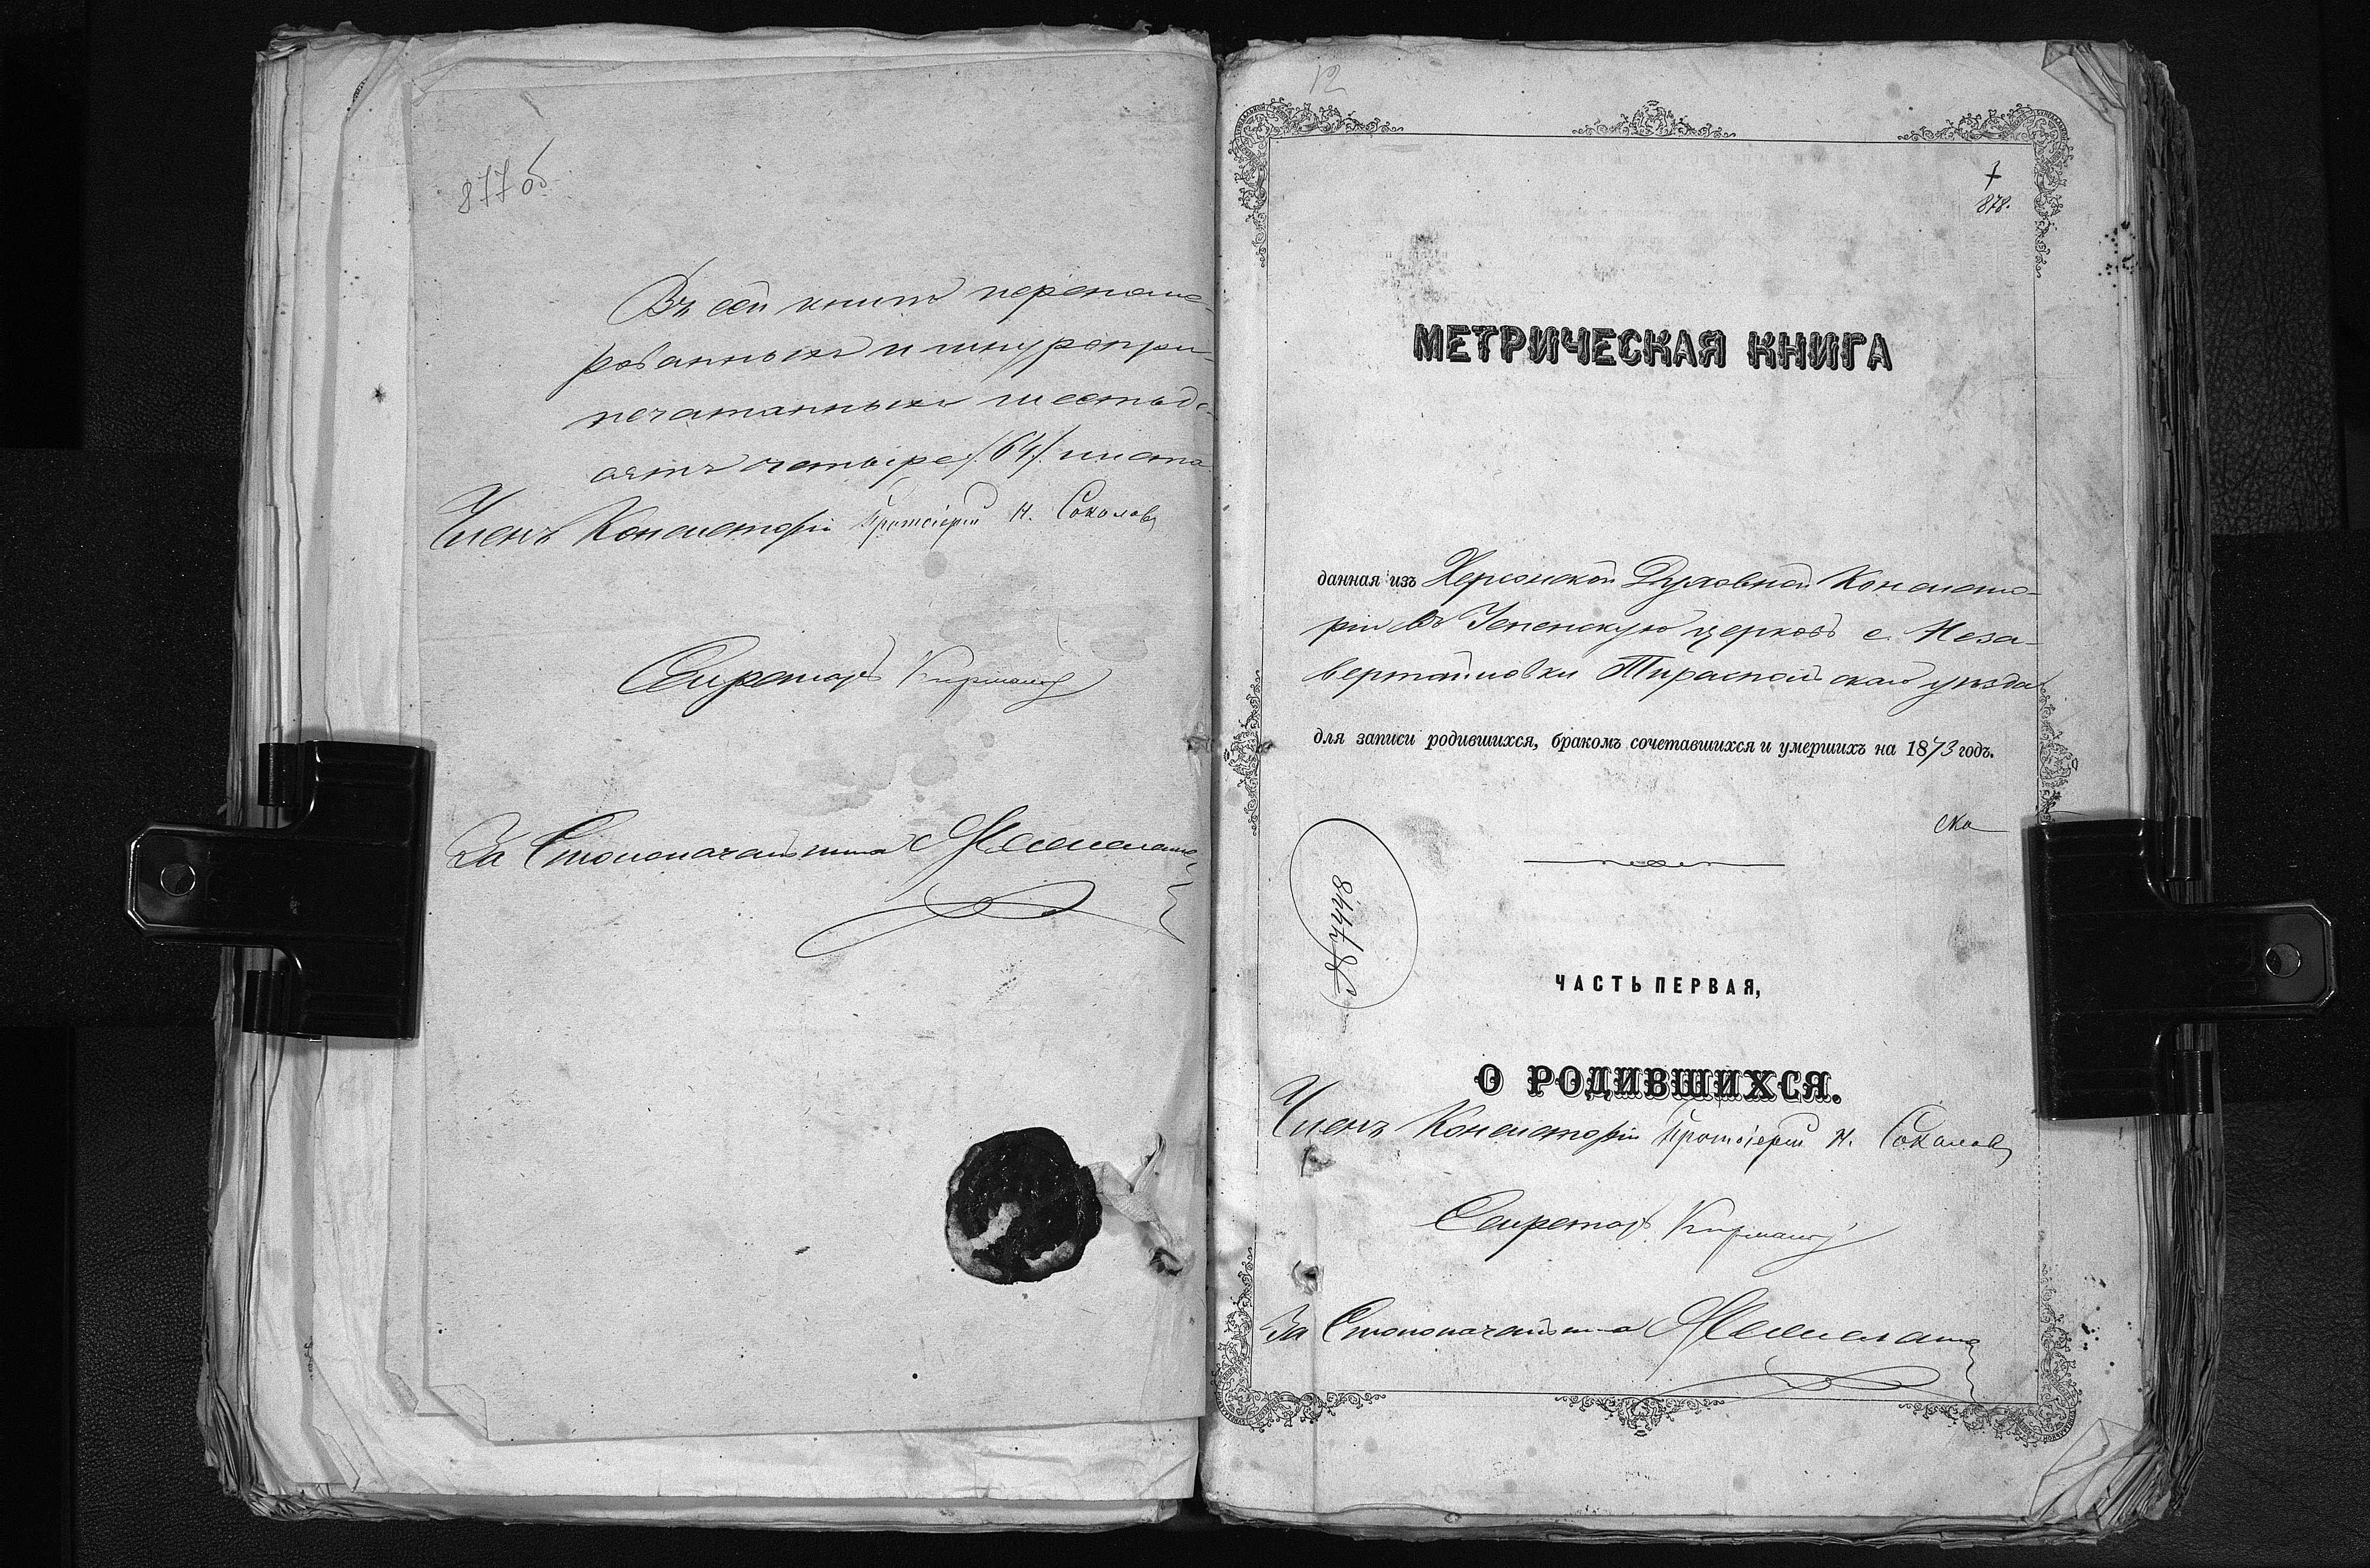 877 об
Въ сей книгѣ перенуме-
рованныхъ и шнуропри-
печатанныхъ шестьде-
сятъ четыре /64/ листа
Членъ Консисторіи Протоіерей Н. Соколовъ
Секретарь
За Столоначальника
12
878.
МЕТРИЧЕСКАЯ КНИГА
данная изъ Херсонской Духовной Консисто-
ріи въ Успенскую церковь с. Неза-
вертайловки Тираспольскаго уѣзда
для записи родившихся, бракомъ сочетавшихся и умершихъ на 1873 годъ.
№ 7448
ЧАСТЬ ПЕРВАЯ,
О РОДИВШИХСЯ.
Членъ Консисторіи Протоіерей Н. Соколовъ
Секретарь
За Столоначальника